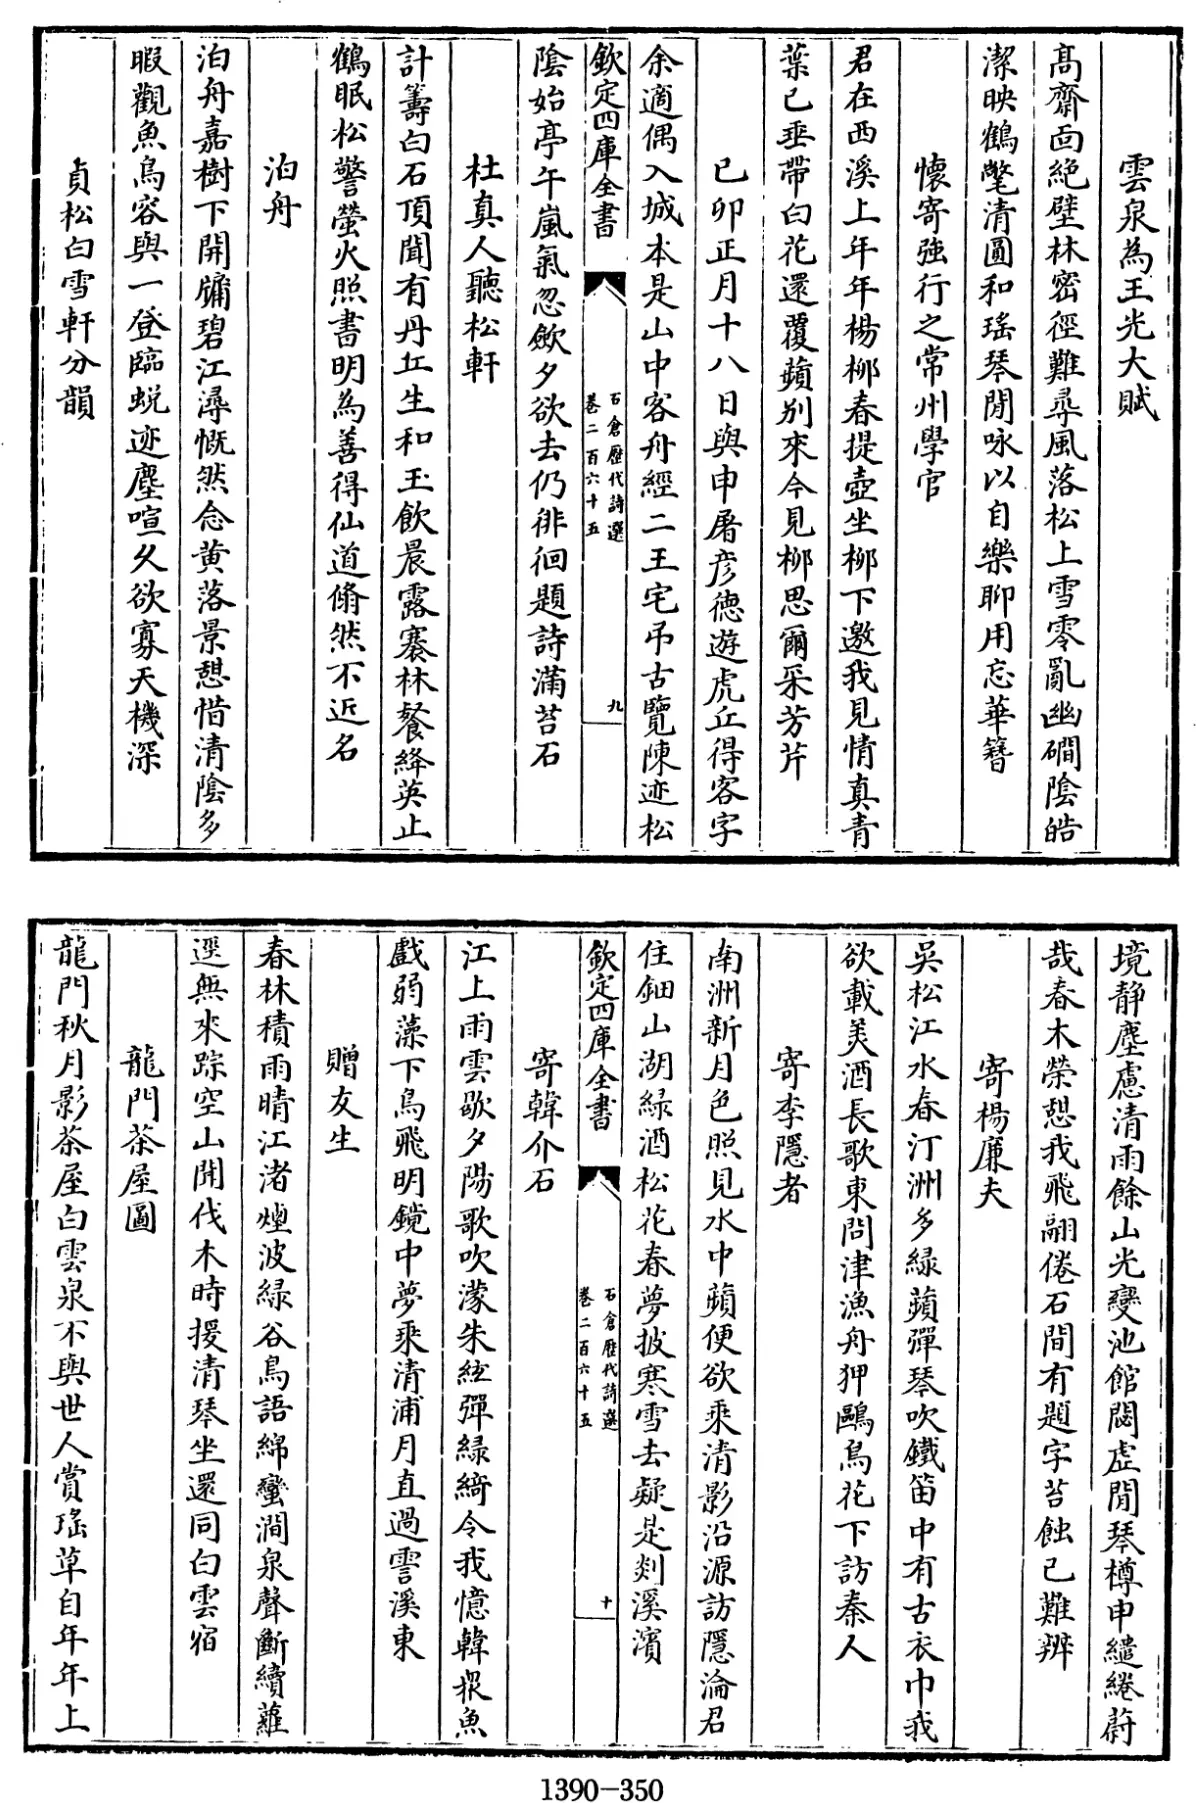 雲泉為王光大賦
髙齋面絶壁林密徑難尋風落松上雪零亂幽磵陰皓
潔映鶴氅清圓和瑶琴閒咏以自樂聊用忘華簮
懷寄強行之常州學官
君在西溪上年年楊柳春提壺坐柳下邀我見情真青
葉已垂帶白花還覆蘋别來今見柳思爾采芳芹
已卯正月十八日與申屠彦德遊虎丘得客字
余適偶入城本是山中客舟經二王宅弔古覽陳迹松
欽定四庫全書
石倉歷代詩選
卷二百六十五
九
陰始亭午嵐氣忽歛夕欲去仍徘徊題詩滿苔石
杜真人聽松軒
計籌白石頂聞有丹丘生和玉飲晨露褰林餐絳英止
鶴眠松警螢火照書明為善得仙道翛然不近名
泊舟
泊舟嘉樹下開牖碧江潯慨然念黄落景憩惜清陰多
暇觀魚鳥容與一登臨蜕迹塵喧久欲寡天機深
貞松白雪軒分韻
境静塵慮清雨餘山光變池館閟虚閒琴樽申繾綣蔚
哉春木榮憩我飛翮倦石間有題字苔蝕已難辨
寄楊廉夫
吳松江水春汀洲多緑蘋彈琴吹鐵笛中有古衣巾我
欲載美酒長歌東問津漁舟狎鷗鳥花下訪秦人
寄李隱者
南洲新月色照見水中蘋便欲乘清影沿源訪隱淪君
住鈿山湖緑酒松花春夢披寒雪去疑是剡溪濱
欽定四庫全書
石倉歷代詩選
卷二百六十五
十
寄韓介石
江上雨雲歇夕陽歌吹濛朱絃彈緑綺令我憶韓根魚
戲弱藻下鳥飛明鏡中夢乘清浦月直過霅溪東
贈友生
春林積雨晴江渚煙波緑谷鳥語綿蠻澗泉聲斷續蘿
逕無來踪空山開伐木時援清琴坐還同白雲宿
龍門茶屋圖
龍門秋月影茶屋白雲泉不與世人賞瑶草自年年上
1390-350